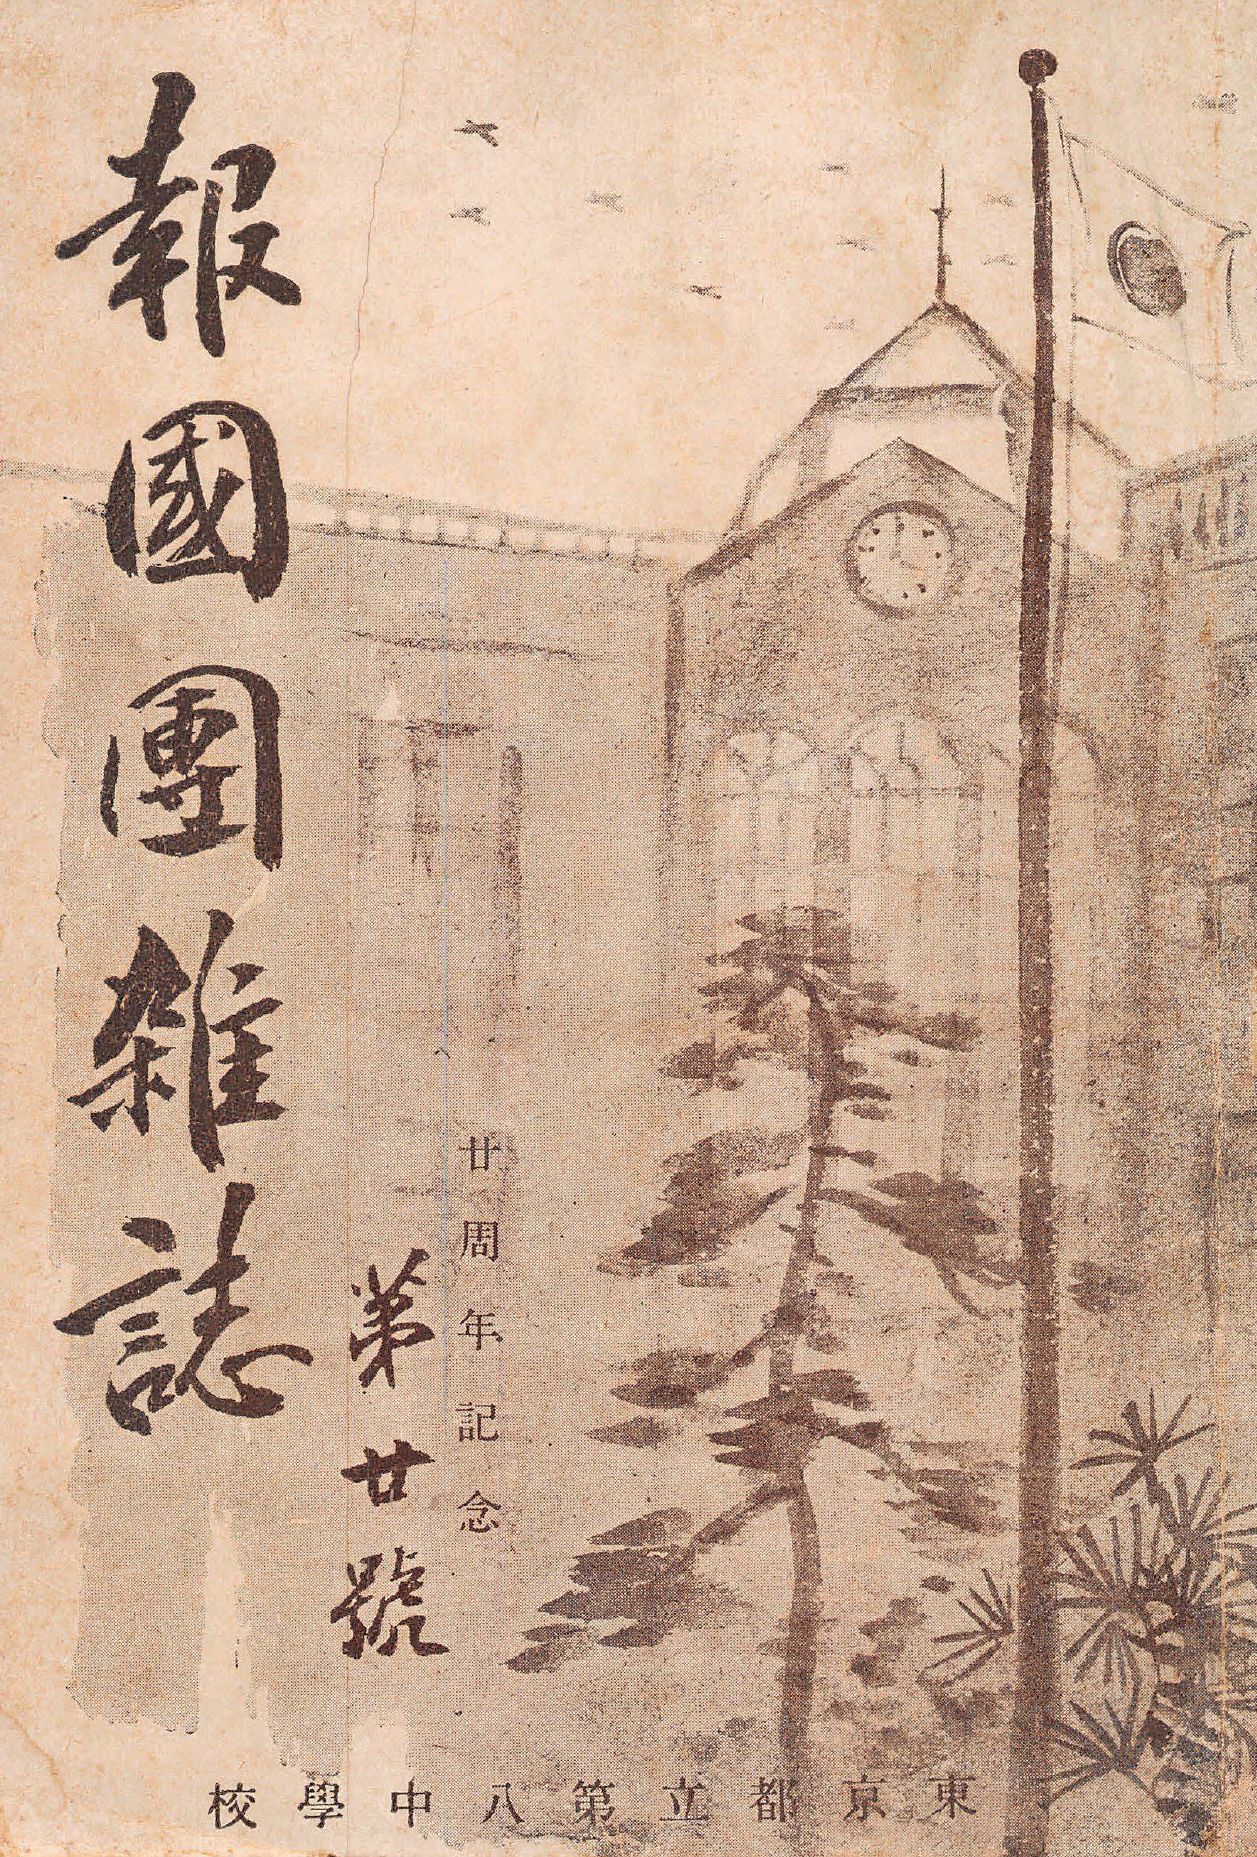 報國團雜誌
第廿號
廿周年記念
東京都立第八中學校